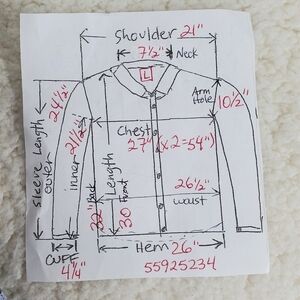 Shoulder 21"
7½" Neck
L
24½"
Sleeve Length
outer
21½"
inner
Arm
Hole
10½"
Chest
27" (x2=54")
Length
32" Back
30 Front
26½"
waist
Hem 26"
CUFF
4¼"
55925234